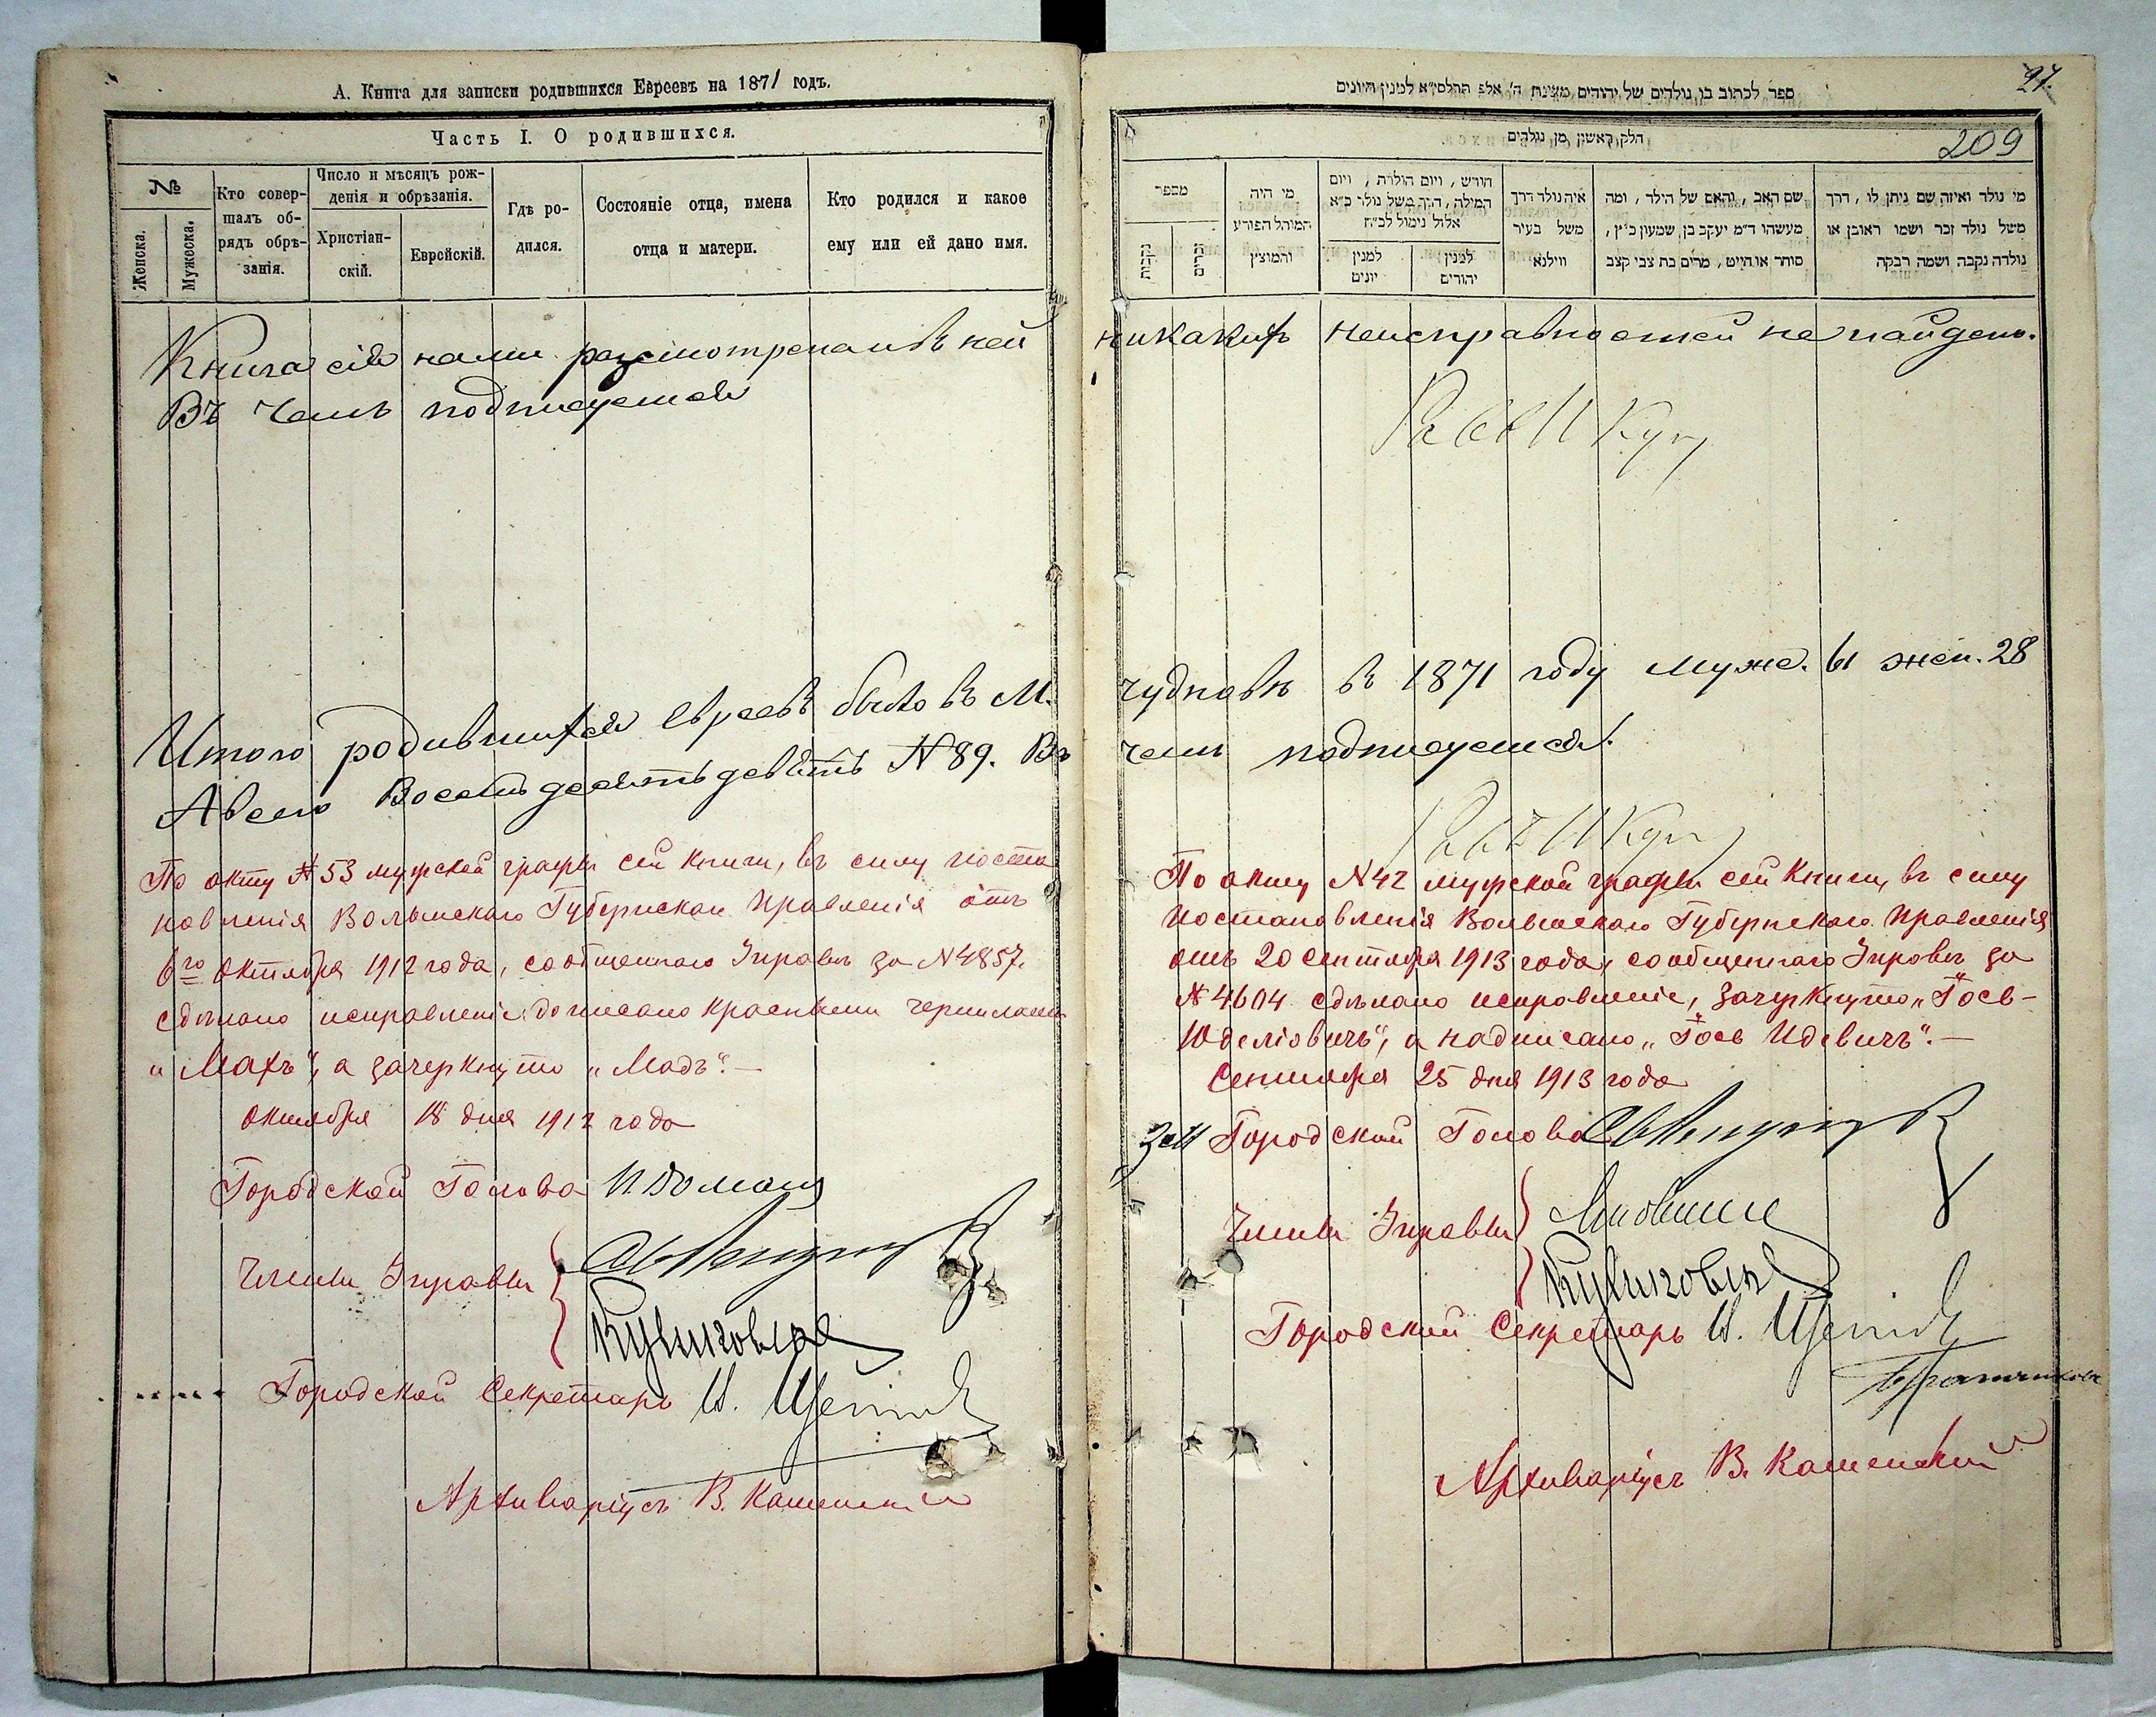 А. Книга для записки родившихся Евреевъ на 1871 годъ.
Часть I. О родившихся.
№
Женска.
Мужеска.
Кто совер-
шалъ об-
рядъ обрѣ-
занія.
Число и мѣсяцъ рож-
денія и обрѣзанія.
Христіан-
скій.
Еврейскій.
Гдѣ ро-
дился.
Состояніе отца, имена
отца и матери.
Кто родился и какое
ему или ей дано имя.
Книга сія нами разсмотрена и въ ней
Въ чемъ подписуемся
Итого родившихся евреевъ было въ М.
А всего Восемьдесятъ девять № 89. Въ
По акту № 53 мужской графы сей книги, въ силу поста
новленія Волынскаго Губернскаго Правленія отъ
6го октября 1912 года, сообщеннаго Управѣ за № 4857.
сдѣлано исправленіе: дописано красными чернилами
„Махъ“, а зачеркнуто „Мадъ“.—
октября 18 дня 1912 года
Городской Голова
Члены Управы
Городской Секретарь
Архиваріусъ В. Каменскій
ספר לכתוב בו נולדים של יהודים משנת ה' אלפ תרלס״א למנין היונים
27.
חלק ראשון מן נולדים
209
מי נולד ואיזה שם ניתן לו , דרך
משל נולד זכר ושמו ראובן או
נולדה נקבה ושמה רבקה
שם האב , והאם של הילד , ומה
מעשהו ד״מ יעקב בן שמעון כ״ץ ,
סוחר או חייט , מרים בת צבי קצב
איה נולד דרך
משל בעיר
ווילנא
חודש , ויום הולדת , ויום
המילה , דרך משל נולד כ״א
אלול נימול לכ״ח
למנין
יהודים
למנין
יונים
מי היה
המוהל הפורע
והמוצץ
מספר
זכרים
נקבות
никакихъ неисправностей не найдено.
Чудновѣ въ 1871 году муж. 61 жен. 28
чемъ подписуемся.
По акту № 42 мужской графы сей книги, въ силу
постановленія Волынскаго Губернскаго Правленія
отъ 20 сентября 1913 года, сообщеннаго Управѣ за
№ 4604 сдѣлано исправленіе, зачеркнуто „Госъ-
Юделіовичъ“, а надписано „Госъ Идевичъ“.—
Сентября 25 дня 1913 года
Городской Голова
Члены Управы
Городской Секретарь
Архиваріусъ В. Каменскій